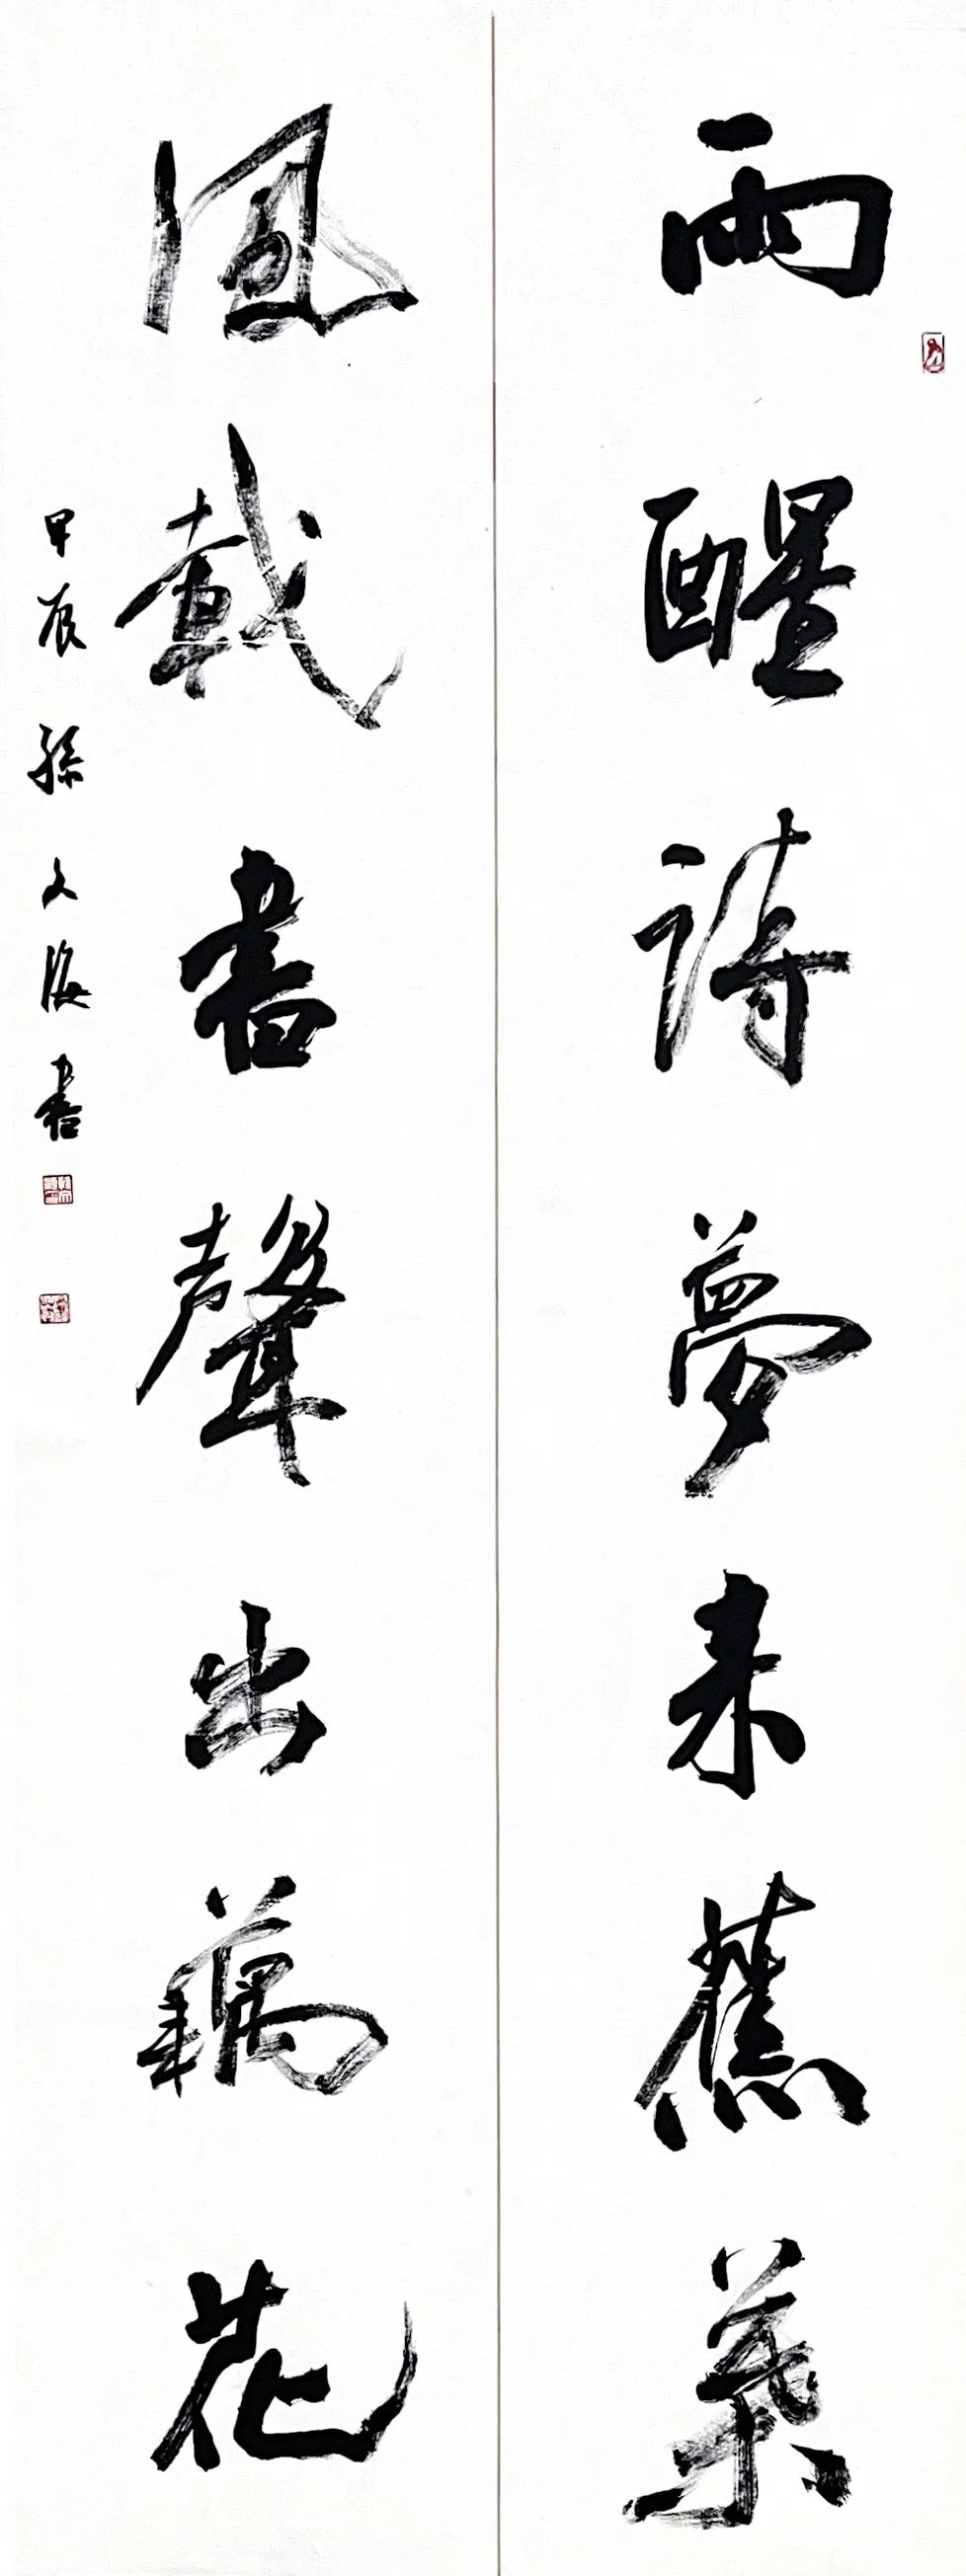 雨醒詩夢来蕉葉
風載書聲出藕花
甲辰孫文海書